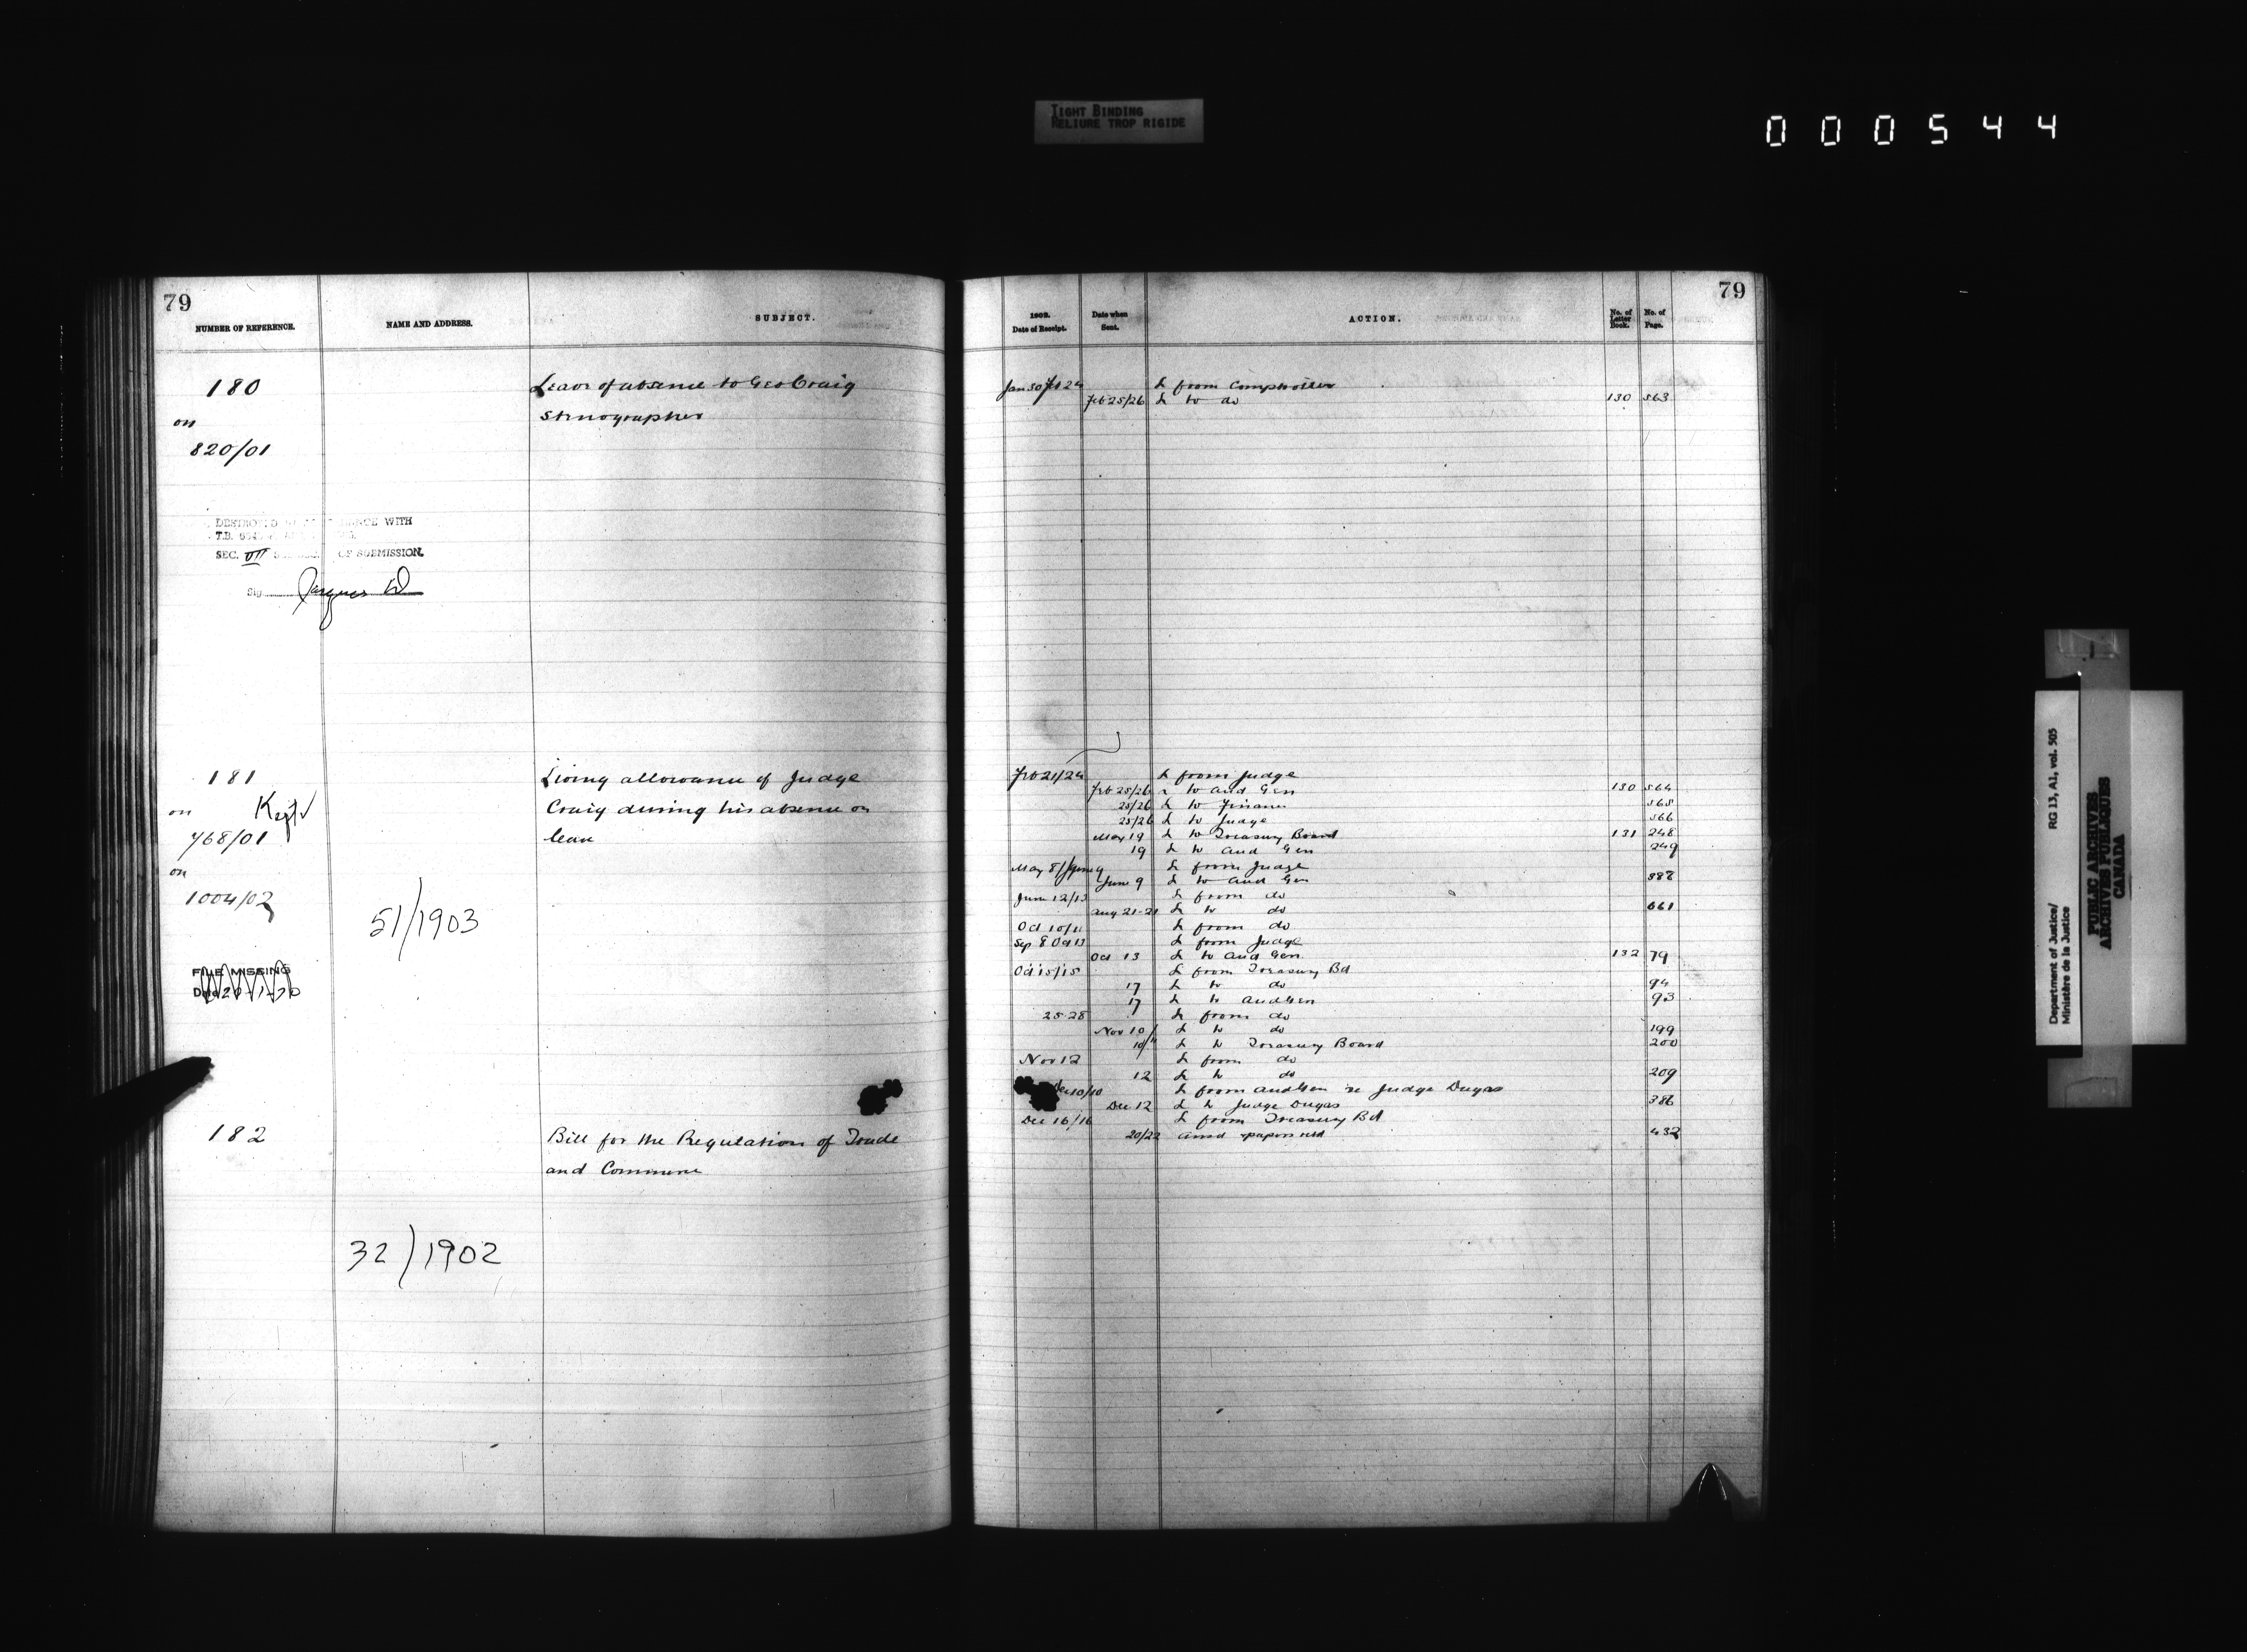 TIGHT BINDING
RELIURE TROP RIGIDE
000544
79
NUMBER OF REFERENCE.
NAME AND ADDRESS.
SUBJECT.
180
on
820/01
Leave of absence to Geo Craig
Stenographer
DESTROYED WITH
T.B.
SEC. VII OF SUBMISSION.
Sig
181
on
Kept
768/01
on
1004/02
51/1903
Living allowance of Judge
Craig during his absence on
leave
FILE MISSING
Date
182
32/1902
Bill for the Regulation of Trade
and Commerce
79
1902.
Date of Receipt.
Date when
Sent.
ACTION.
No. of
Letter
Book.
No. of
Page.
Jan 30 Feb 24 L from Comptroller
Feb 25/26 L to do 130 563
Feb 21/24 L from Judge
Feb 25/26 L to Aud Gen 130 564
25/26 L to Finance 565
25/26 L to Judge 566
May 19 L to Treasury Board 131 248
19 L to Aud Gen 249
May 8/June 9 L from Judge
June 9 L to Aud Gen 387
June 12/13 L from do
Aug 21-21 L to do 661
Oct 10/11 L from do
Sep 8 Oct 13 L from Judge
Oct 13 L to Aud Gen 132 79
Oct 15/15 L from Treasury Bd
17 L to do 94
17 L to Aud Gen 93
25-28 L from do
Nov 10/ L to do 199
10/11 L to Treasury Board 200
Nov 12 L from do
12 L to do 209
Dec 10/10 L from Aud Gen re Judge Dugas
Dec 12 L to Judge Dugas 386
Dec 16/16 L from Treasury Bd
20/22 papers retd 432
Department of Justice/
Ministère de la Justice
RG 13, A1, vol. 505
PUBLIC ARCHIVES
ARCHIVES PUBLIQUES
CANADA